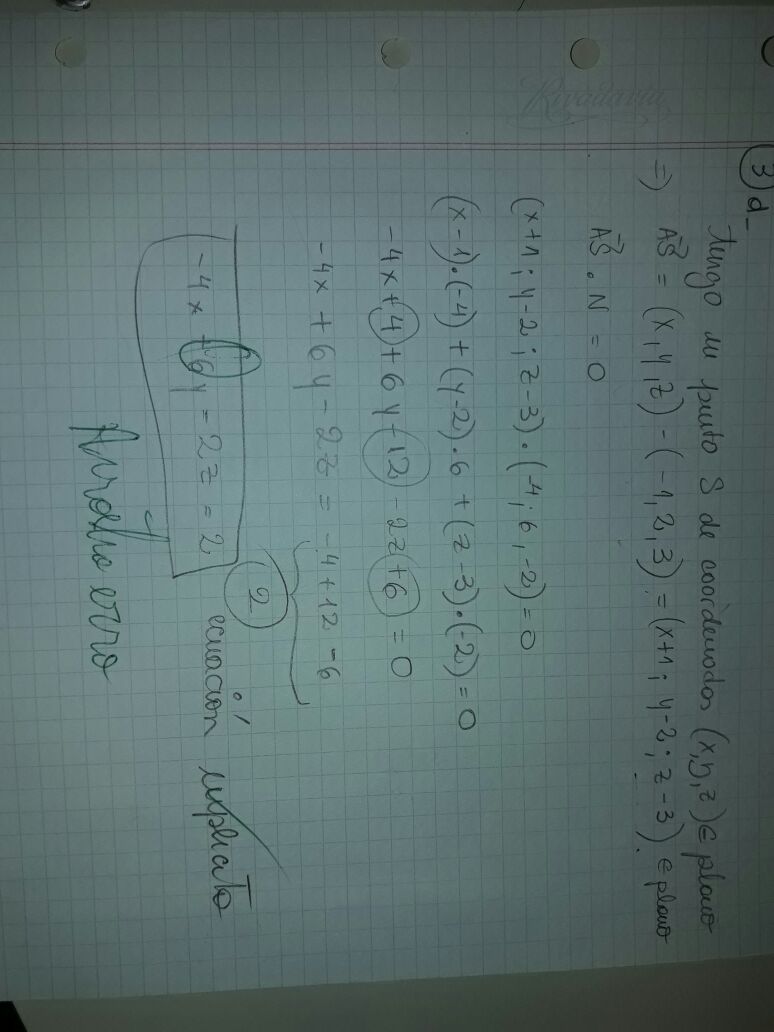 Rivadavia
3) d_
Tengo un punto S de coordenadas (x,y,z) ∈ plano
⇒) AS⃗ = (x,y,z) - (-1,2,3) = (x+1; y-2; z-3) ∈ plano
AS⃗ . N = 0
(x+1; y-2; z-3) . (-4; 6, -2) = 0
(x-1).(-4) + (y-2).6 + (z-3).(-2) = 0
-4x+4+6y+12-2z+6 = 0
-4x+6y-2z = -4+12-6
2
-4x+6y=2z=2 ecuación implicita